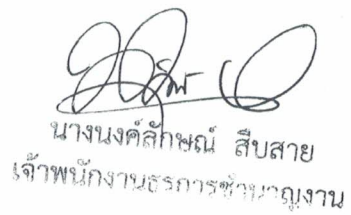 นางนงค์ลักษณ์ สืบสาย
เจ้าพนักงานธุรการชำนาญงาน